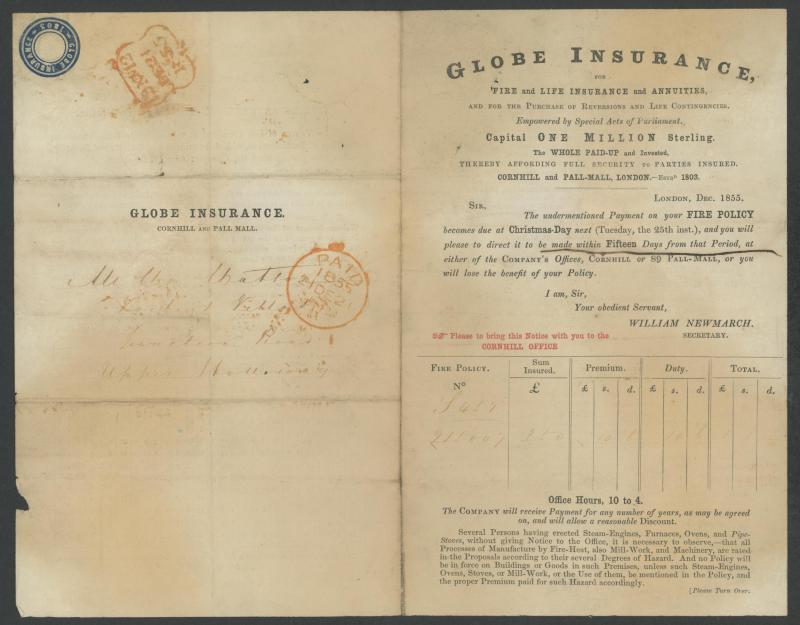 GLOBE INSURANCE
1803
GLOBE INSURANCE.
CORNHILL AND PALL MALL.
PAID
Upper Holloway
GLOBE INSURANCE,
FOR
FIRE and LIFE INSURANCE and ANNUITIES,
AND FOR THE PURCHASE OF REVERSIONS AND LIFE CONTINGENCIES.
Empowered by Special Acts of Parliament.
Capital ONE MILLION Sterling.
The WHOLE PAID-UP and Invested,
THEREBY AFFORDING FULL SECURITY TO PARTIES INSURED.
CORNHILL and PALL-MALL, LONDON.—ESTABD 1803.
LONDON, DEC. 1855.
SIR,
The undermentioned Payment on your FIRE POLICY
becomes due at Christmas-Day next (Tuesday, the 25th inst.), and you will
please to direct it to be made within Fifteen Days from that Period, at
either of the COMPANY'S Offices, CORNHILL or 89 PALL-MALL, or you
will lose the benefit of your Policy.
I am, Sir,
Your obedient Servant,
WILLIAM NEWMARCH.
SECRETARY.
Please to bring this Notice with you to the
CORNHILL OFFICE
FIRE POLICY. Sum Insured. Premium. Duty. TOTAL.
No £ £ s. d. £ s. d. £ s. d.
250
Office Hours, 10 to 4.
The COMPANY will receive Payment for any number of years, as may be agreed
on, and will allow a reasonable Discount.
Several Persons having erected Steam-Engines, Furnaces, Ovens, and Pipe-
Stoves, without giving Notice to the Office, it is necessary to observe,—that all
Processes of Manufacture by Fire-Heat, also Mill-Work, and Machinery, are rated
in the Proposals according to their several Degrees of Hazard. And no Policy will
be in force on Buildings or Goods in such Premises, unless such Steam-Engines,
Ovens, Stoves, or Mill-Work, or the Use of them, be mentioned in the Policy, and
the proper Premium paid for such Hazard accordingly.
[Please Turn Over.